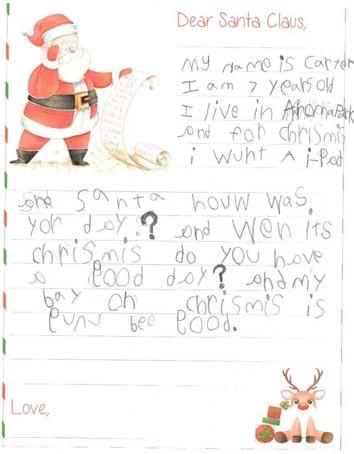 Dear Santa Claus,
My name is Carter
I am 7 years old
I live in
and for chrismis
i wunt a i-Pod
and santa houw was
yor day? and wen its
chrismis do you have
a good day? and my
bay on chrismis is
gunu bee good.
Love,